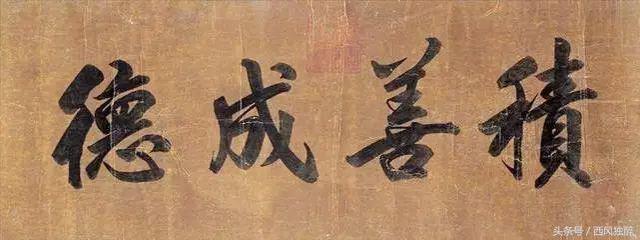 積善成德
头条号/西风独醉